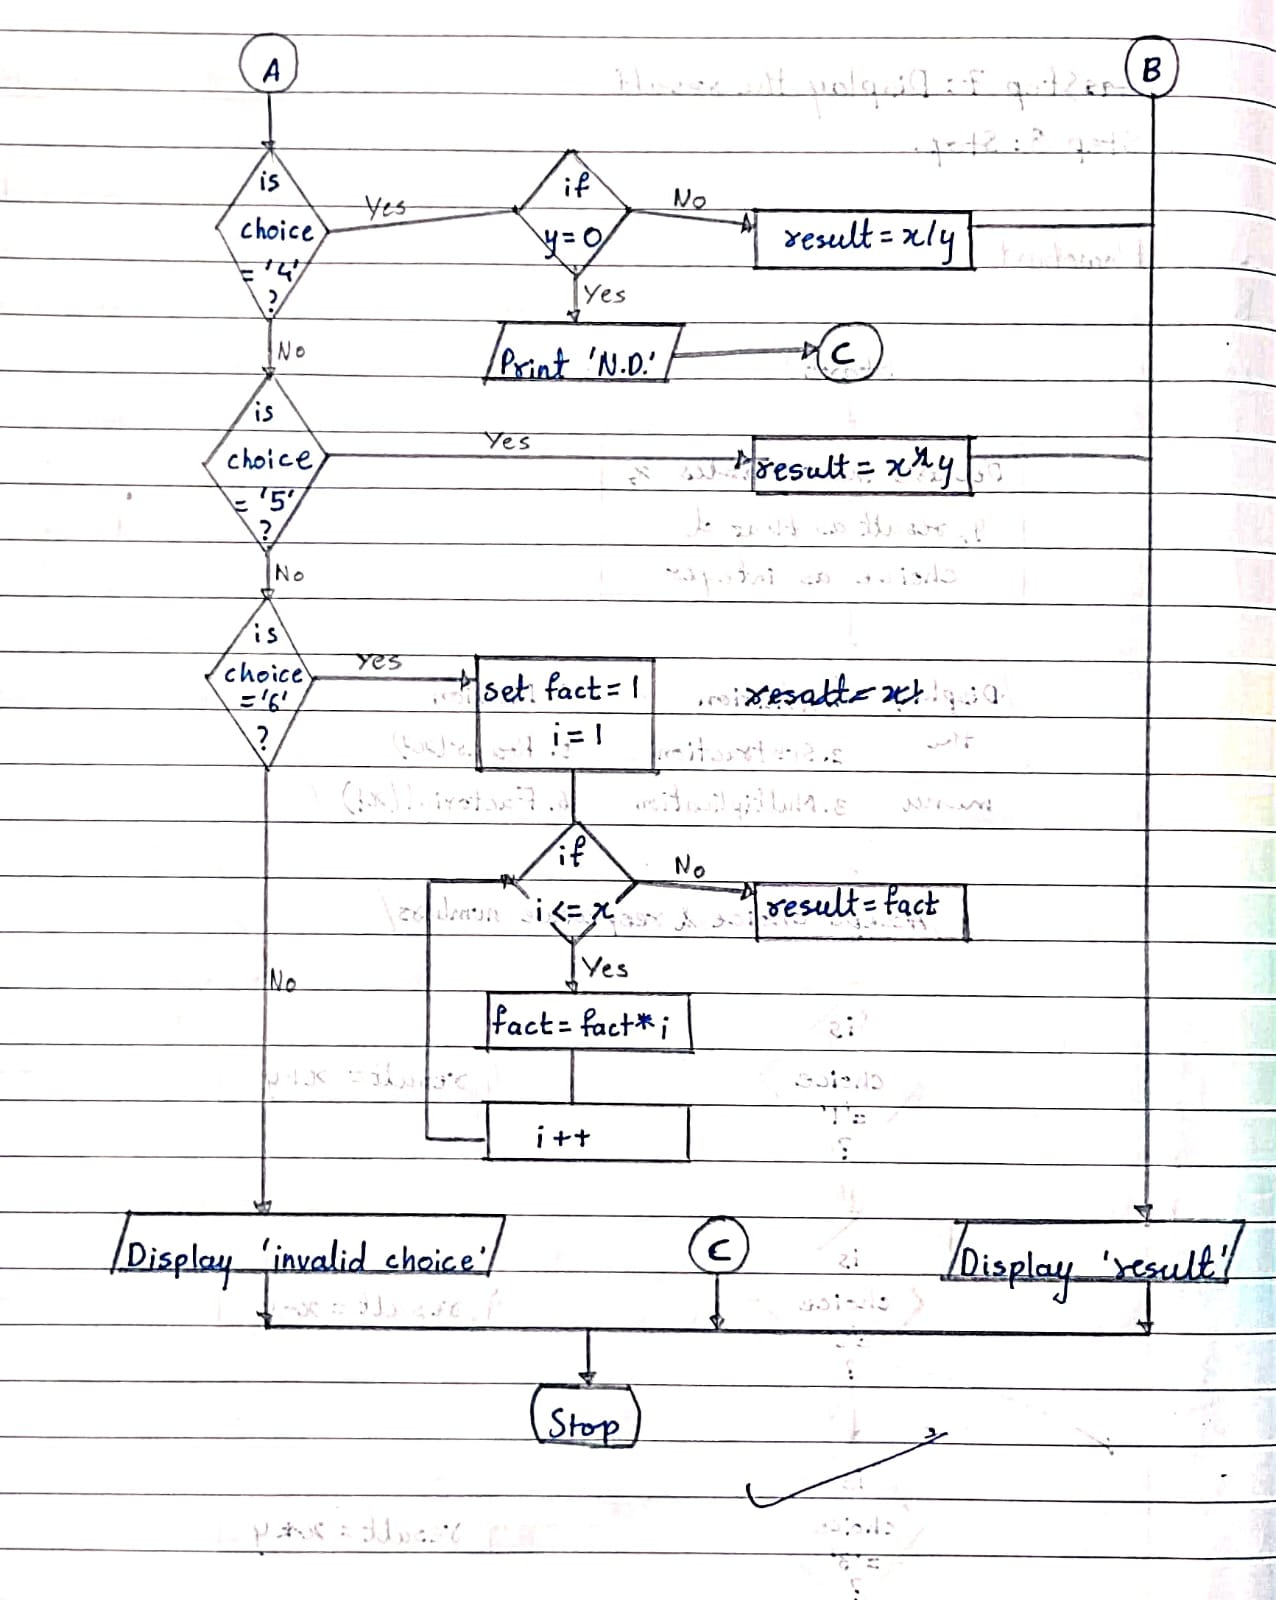 A
B
is
choice
= '4'
?
Yes
if
y = 0
No
result = x/y
Yes
Print 'N.D.'
C
No
is
choice
= '5'
?
Yes
No
is
choice
= '6'
?
Yes
set fact = 1
i = 1
if
i <= x
No
result = fact
Yes
fact = fact * i
i ++
No
Display 'invalid choice'
C
Display 'result'
Stop